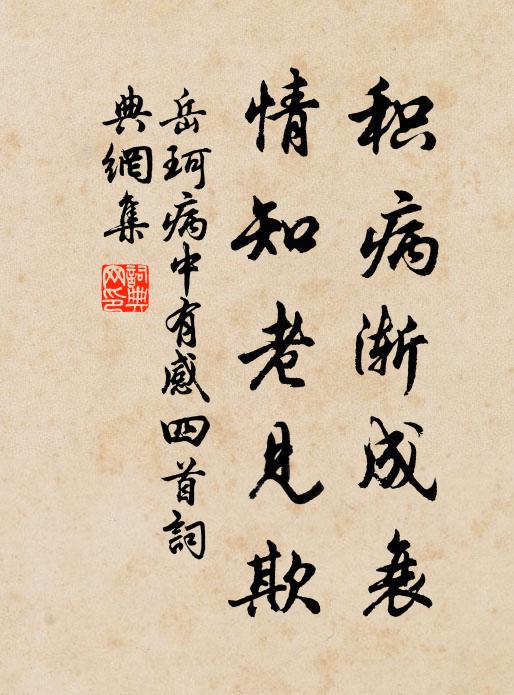 积病渐成衰
情知老见欺
岳珂病中有感四首詞
典網集
詞典
网印